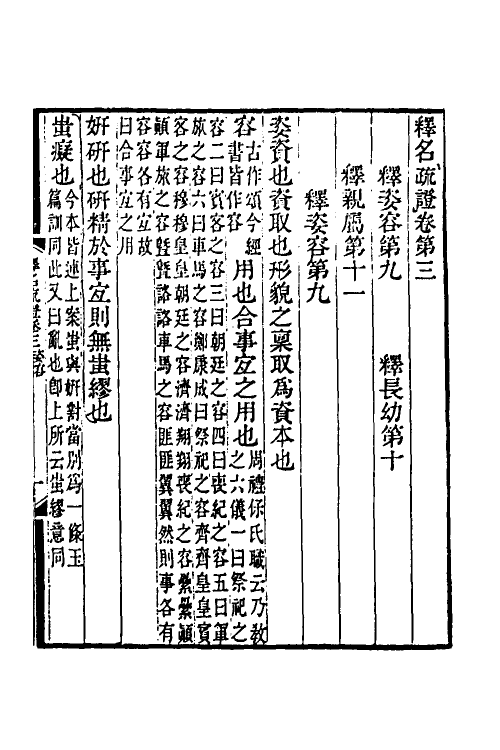 釋名疏證卷第三
釋姿容第九　釋長幼第十
釋親屬第十一
釋姿容第九
姿資也資取也形貌之稟取爲資本也
容古作頌今經書皆作容用也合事宐之用也周禮保氏職云乃敎之六儀一曰祭祀之
容二曰賓客之容三曰朝廷之容四曰喪紀之容五曰軍
旅之容六曰車馬之容鄭康成曰祭祀之容齊齊皇皇賓
客之容穆穆皇皇朝廷之容濟濟翔翔喪紀之容纍纍顚
顚軍旅之容曁曁詻詻車馬之容匪匪翼翼然則事各有
容容各有宐故
曰合事宐之用
姸硏也硏精於事宐則無蚩繆也
蚩癡也今本皆連上案蚩與姸對當別爲一條玉
篇訓同此又曰亂也卽上所云蚩繆意同